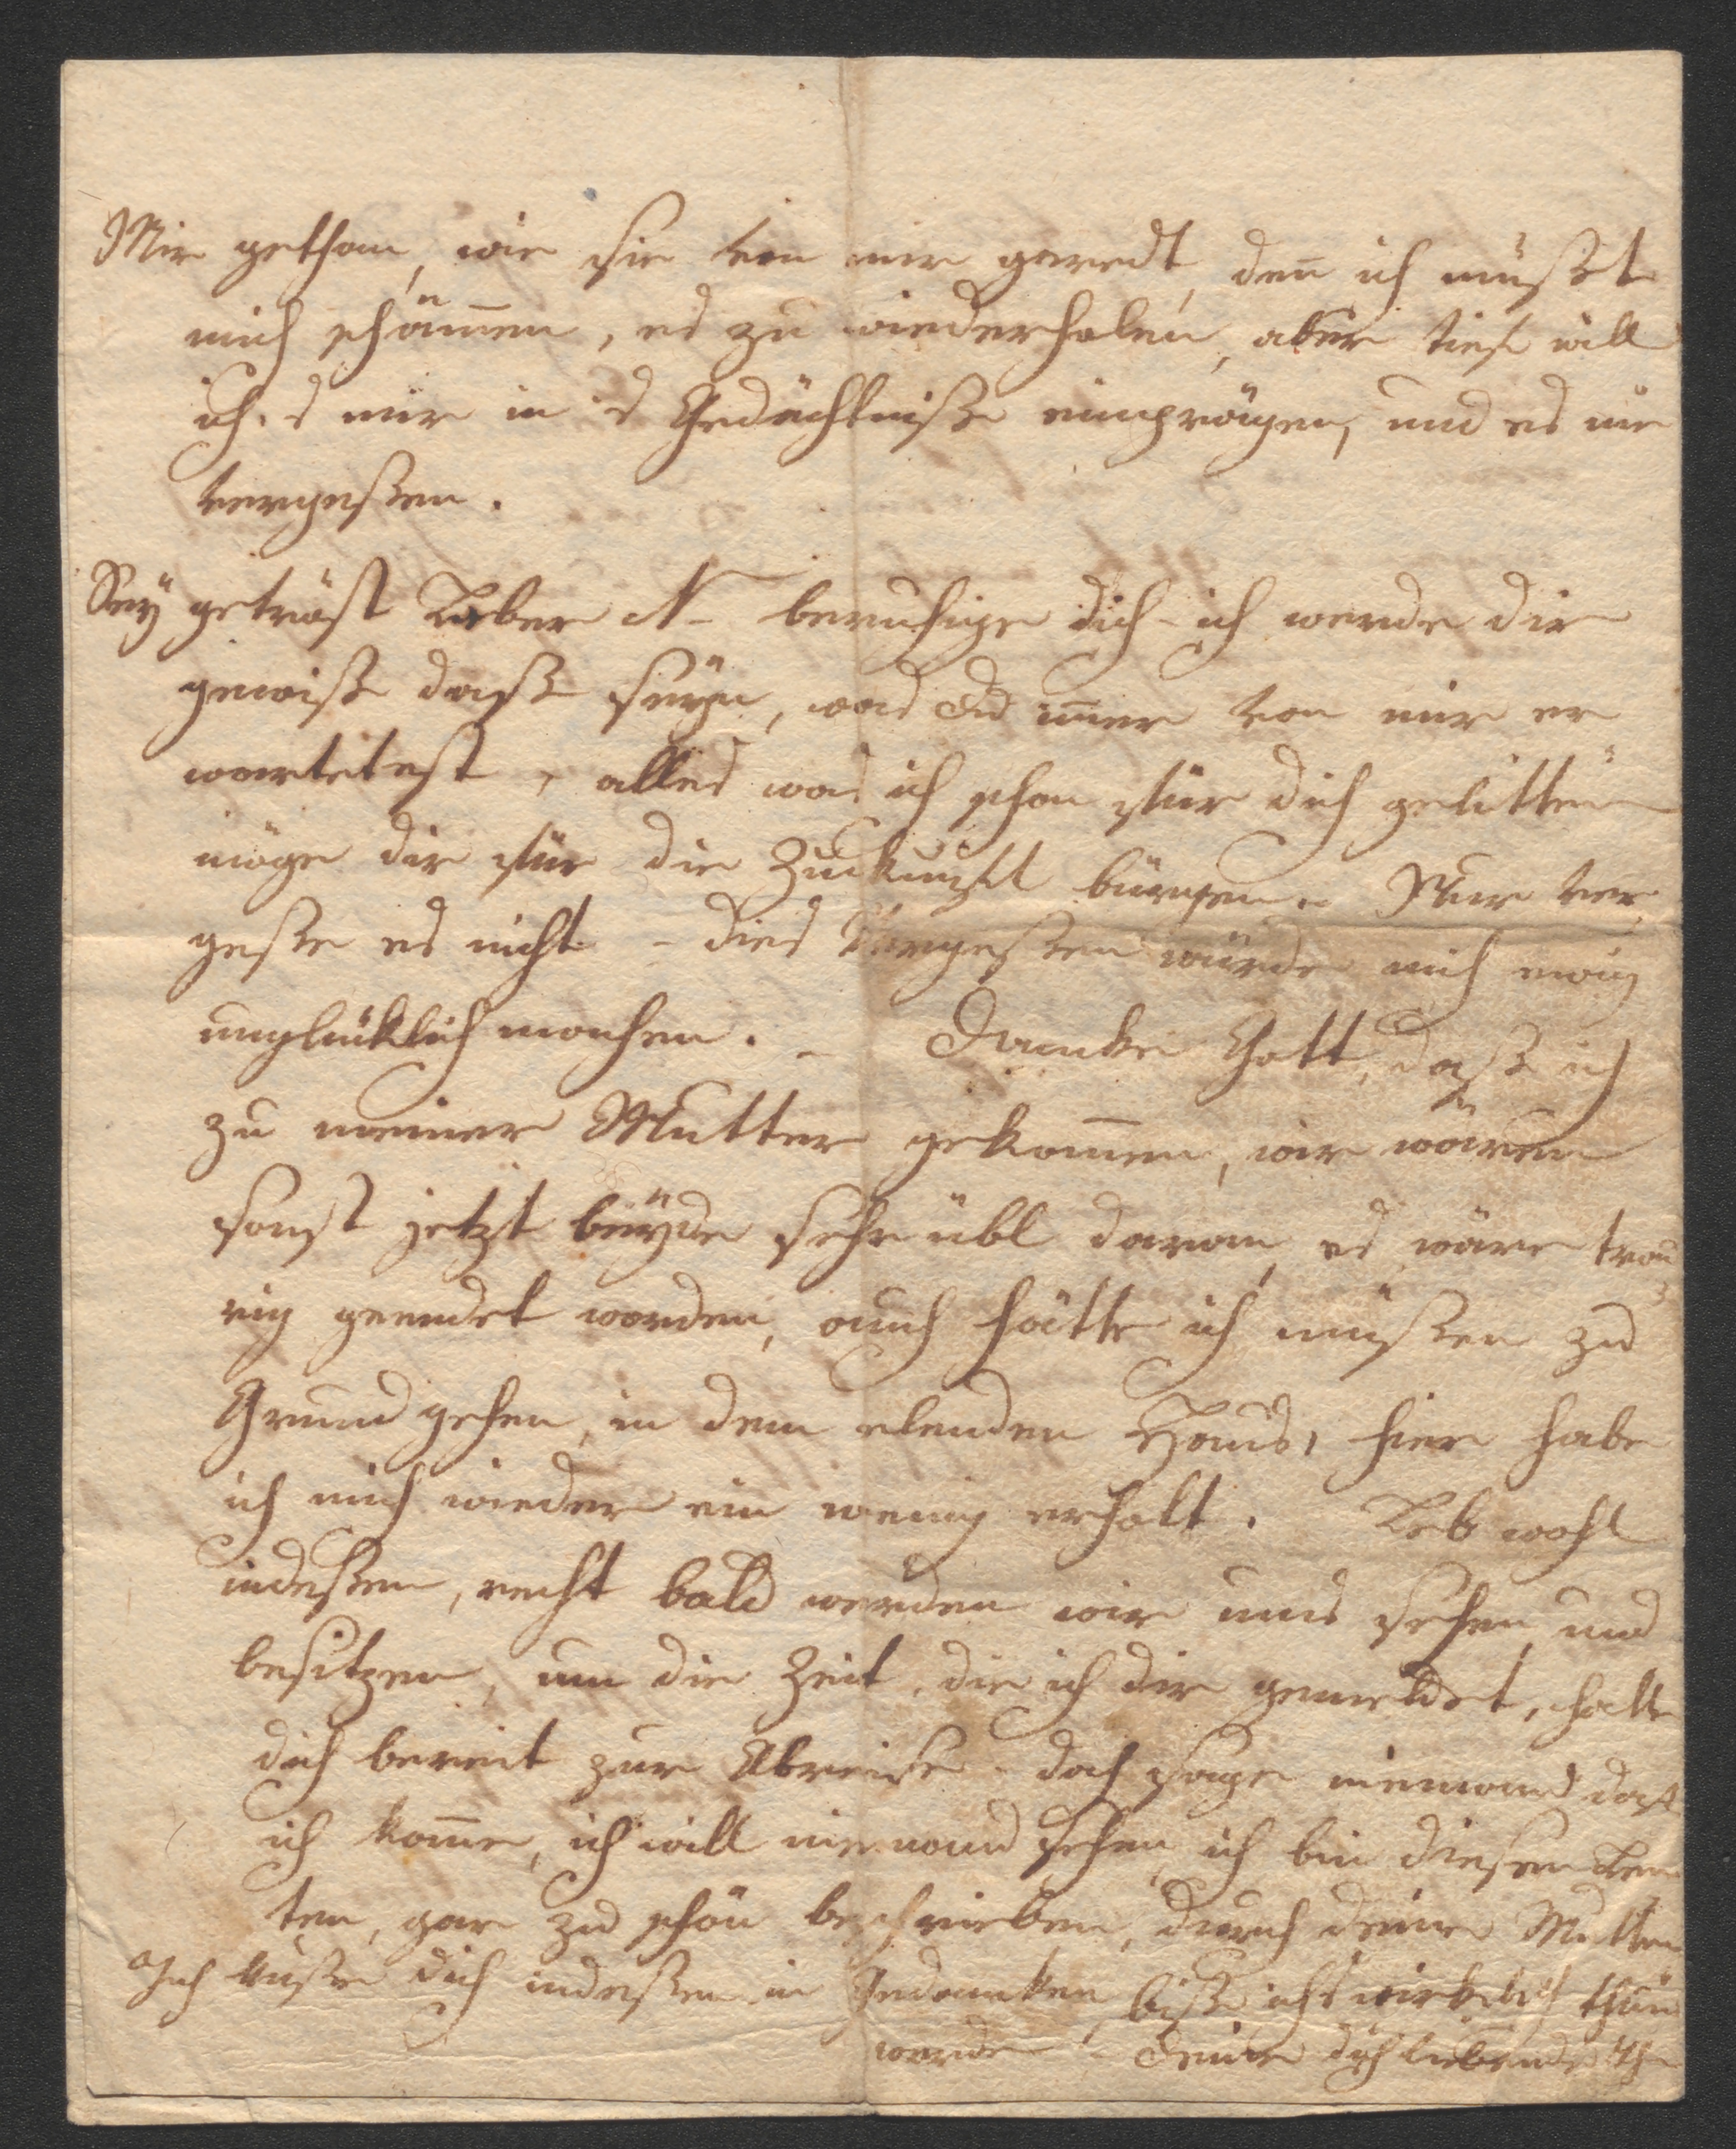 Mir gethan, wie sie von mir geredt, deñ ich müßt
mich schämen, es zu wiederholen, aber tief will
ich's mir in's Gedächtniße einprägen, und es nie
vergeßen.
Seÿ getröst Lieber N– beruhige dich – ich werde dir
gewiß daß seÿn, was du im̄er von mir er
wartetest, alles was ich schon für dich gelitten
möge dir für die Zuckunft bürgen. Nur ver
geße es nicht – dies Vergeßen würde mich ewig
unglüklich machen. – Dancke Gott, daß ich
zu meiner Mutter gekom̄en, wir wären
sonst jetzt beÿde sehr übl daran, es wäre trau
rig geendet worden, auch hätte ich müßen zu
Grund gehen, in dem elenden Haus, hier habe
ich mich wieder ein wenig erholt. Leb wohl
indeßen, recht bald werden wir uns sehen, und
besitzen, um die Zeit, die ich dir gemeldet, halte
dich bereit zur Abreise – doch sage niemand daß
ich kom̄e, ich will niemand sehen, ich bin diesen Leu
ten, gar zu schön beschrieben, durch deine Mutter
Ich küße dich indeßen in Gedancken, biß ichs wirklich thun
werde – Deine dich liebende Th